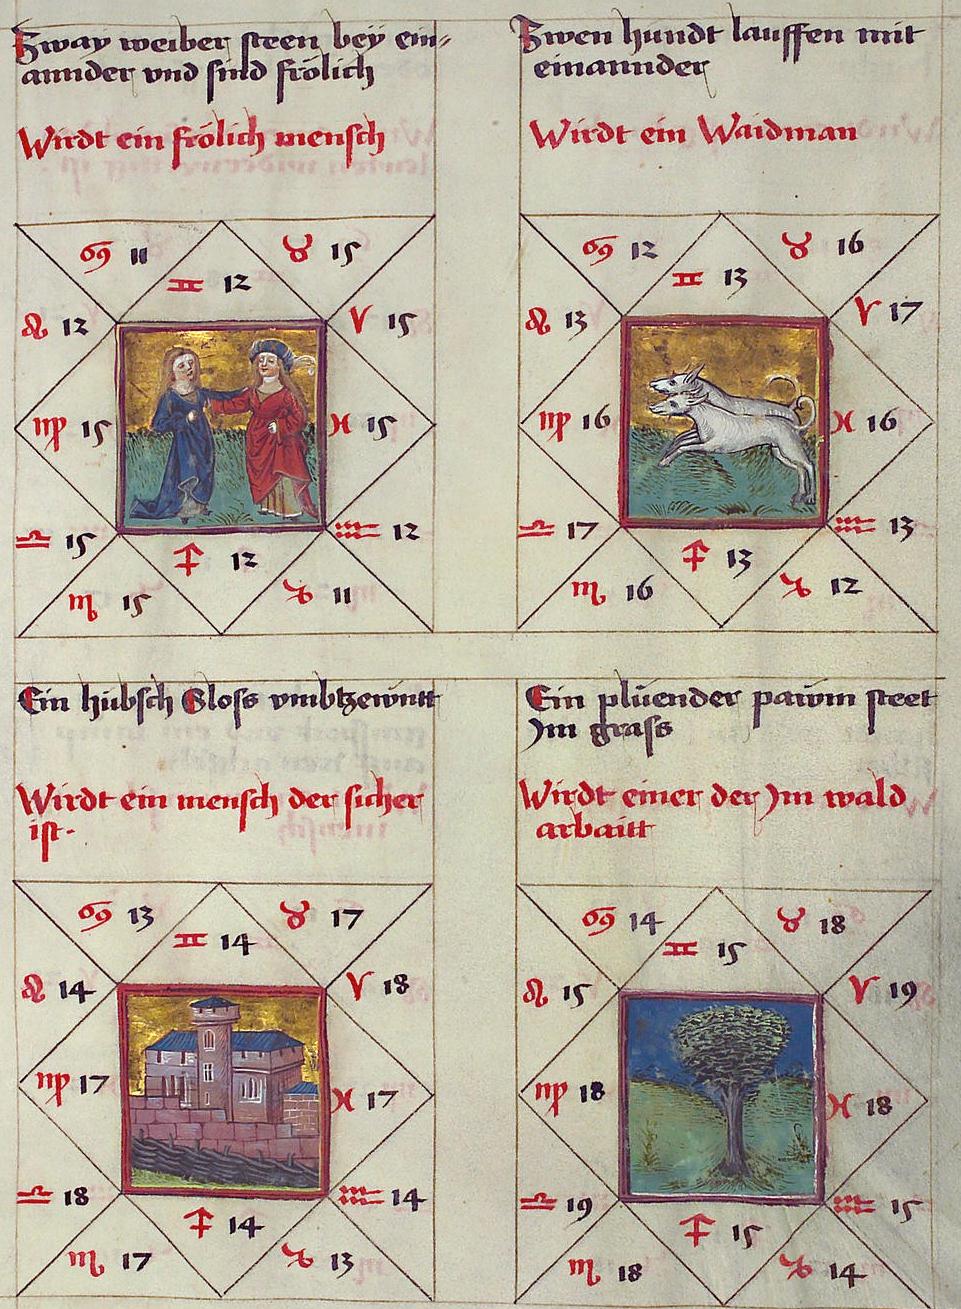 Zway weiber steen bey ein=
annder vnd sind frölich
Wirdt ein frölich mensch
♋ 11
♊ 12
♉ 15
♌ 12
♈ 15
♍ 15
♓ 15
♎ 15
♒ 12
♏ 15
♐ 12
♑ 11
Zwen hundt lauffen mit
einannder
Wirdt ein Waidman
♋ 12
♊ 13
♉ 16
♌ 13
♈ 17
♍ 16
♓ 16
♎ 17
♒ 13
♏ 16
♐ 13
♑ 12
Ein hübsch Sloss vmbtzewntt
Wirdt ein mensch der sicher
ist.
♋ 13
♊ 14
♉ 17
♌ 14
♈ 18
♍ 17
♓ 17
♎ 18
♒ 14
♏ 17
♐ 14
♑ 13
Ein plüender pawm steet
Jm grass
Wirdt einer der Jm wald
arbaitt
♋ 14
♊ 15
♉ 18
♌ 15
♈ 19
♍ 18
♓ 18
♎ 19
♒ 15
♏ 18
♐ 15
♑ 14